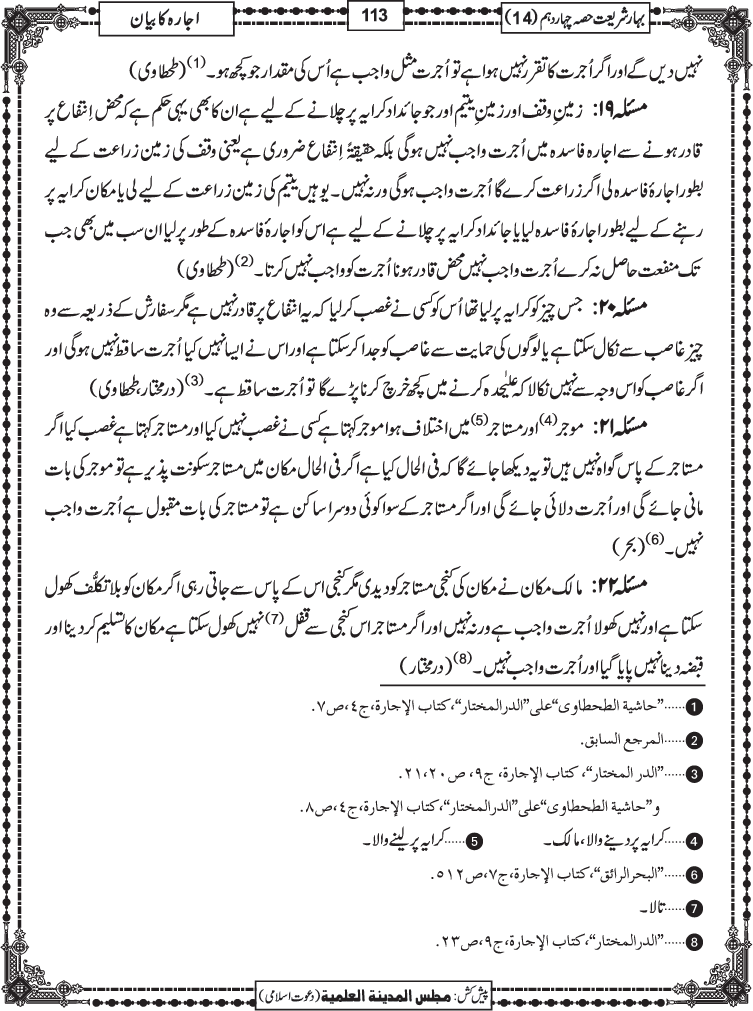 بہار شریعت حصہ چہاردہم (14)
113
اجارہ کا بیان
نہیں دیں گے اور اگر اُجرت کا تقرر نہیں ہوا ہے تو اُجرت مثل واجب ہے اُس کی مقدار جو کچھ ہو۔(1) (طحطاوی)
مسئلہ ۱۹: زمینِ وقف اور زمینِ یتیم اور جو جائداد کرایہ پر چلانے کے لیے ہے ان کا بھی یہی حکم ہے کہ محض اِنتفاع پر
قادر ہونے سے اجارہ فاسدہ میں اُجرت واجب نہیں ہوگی بلکہ حقیقۃً اِنتفاع ضروری ہے یعنی وقف کی زمین زراعت کے لیے
بطور اجارۂ فاسدہ لی اگر زراعت کرے گا اُجرت واجب ہوگی ورنہ نہیں۔ یوہیں یتیم کی زمین زراعت کے لیے لی یا مکان کرایہ پر
رہنے کے لیے بطور اجارۂ فاسدہ لیا یا جائداد کرایہ پر چلانے کے لیے ہے اس کو اجارۂ فاسدہ کے طور پر لیا ان سب میں بھی جب
تک منفعت حاصل نہ کرے اُجرت واجب نہیں محض قادر ہونا اُجرت کو واجب نہیں کرتا۔(2) (طحطاوی)
مسئلہ ۲۰: جس چیز کو کرایہ پر لیا تھا اُس کو کسی نے غصب کرلیا کہ یہ اِنتفاع پر قادر نہیں ہے مگر سفارش کے ذریعہ سے وہ
چیز غاصب سے نکال سکتا ہے یا لوگوں کی حمایت سے غاصب کو جدا کرسکتا ہے اور اس نے ایسا نہیں کیا اُجرت ساقط نہیں ہوگی اور
اگر غاصب کو اس وجہ سے نہیں نکالا کہ علیٰحدہ کرنے میں کچھ خرچ کرنا پڑے گا تو اُجرت ساقط ہے۔(3) (درمختار، طحطاوی)
مسئلہ ۲۱: موجر(4) اور مستاجر(5) میں اختلاف ہوا موجر کہتا ہے کسی نے غصب نہیں کیا اور مستاجر کہتا ہے غصب کیا اگر
مستاجر کے پاس گواہ نہیں ہیں تو یہ دیکھا جائے گا کہ فی الحال کیا ہے اگر فی الحال مکان میں مستاجر سکونت پذیر ہے تو موجر کی بات
مانی جائے گی اور اُجرت دلائی جائے گی اور اگر مستاجر کے سوا کوئی دوسرا ساکن ہے تو مستاجر کی بات مقبول ہے اُجرت واجب
نہیں۔(6) (بحر)
مسئلہ ۲۲: مالک مکان نے مکان کی کنجی مستاجر کو دیدی مگر کنجی اس کے پاس سے جاتی رہی اگر مکان کو بلا تکلُّف کھول
سکتا ہے اور نہیں کھولا اُجرت واجب ہے ورنہ نہیں اور اگر مستاجر اس کنجی سے قفل(7) نہیں کھول سکتا ہے مکان کا تسلیم کردینا اور
قبضہ دینا نہیں پایا گیا اور اُجرت واجب نہیں۔(8) (درمختار)
1......”حاشیة الطحطاوی“علی”الدرالمختار“، کتاب الإجارة،ج٤،ص٧.
2......المرجع السابق.
3......”الدر المختار“، کتاب الإجارة، ج٩، ص٢١،٢٠.
و”حاشیة الطحطاوی“علی”الدرالمختار“، کتاب الإجارة،ج٤،ص٨.
4......کرایہ پر دینے والا، مالک۔ 5......کرایہ پر لینے والا۔
6......”البحرالرائق“، کتاب الإجارة،ج٧،ص٥١٢.
7......تالا۔
8......”الدرالمختار“، کتاب الإجارة،ج٩،ص٢٣.
پیش کش: مجلس المدینة العلمیة (دعوت اسلامی)